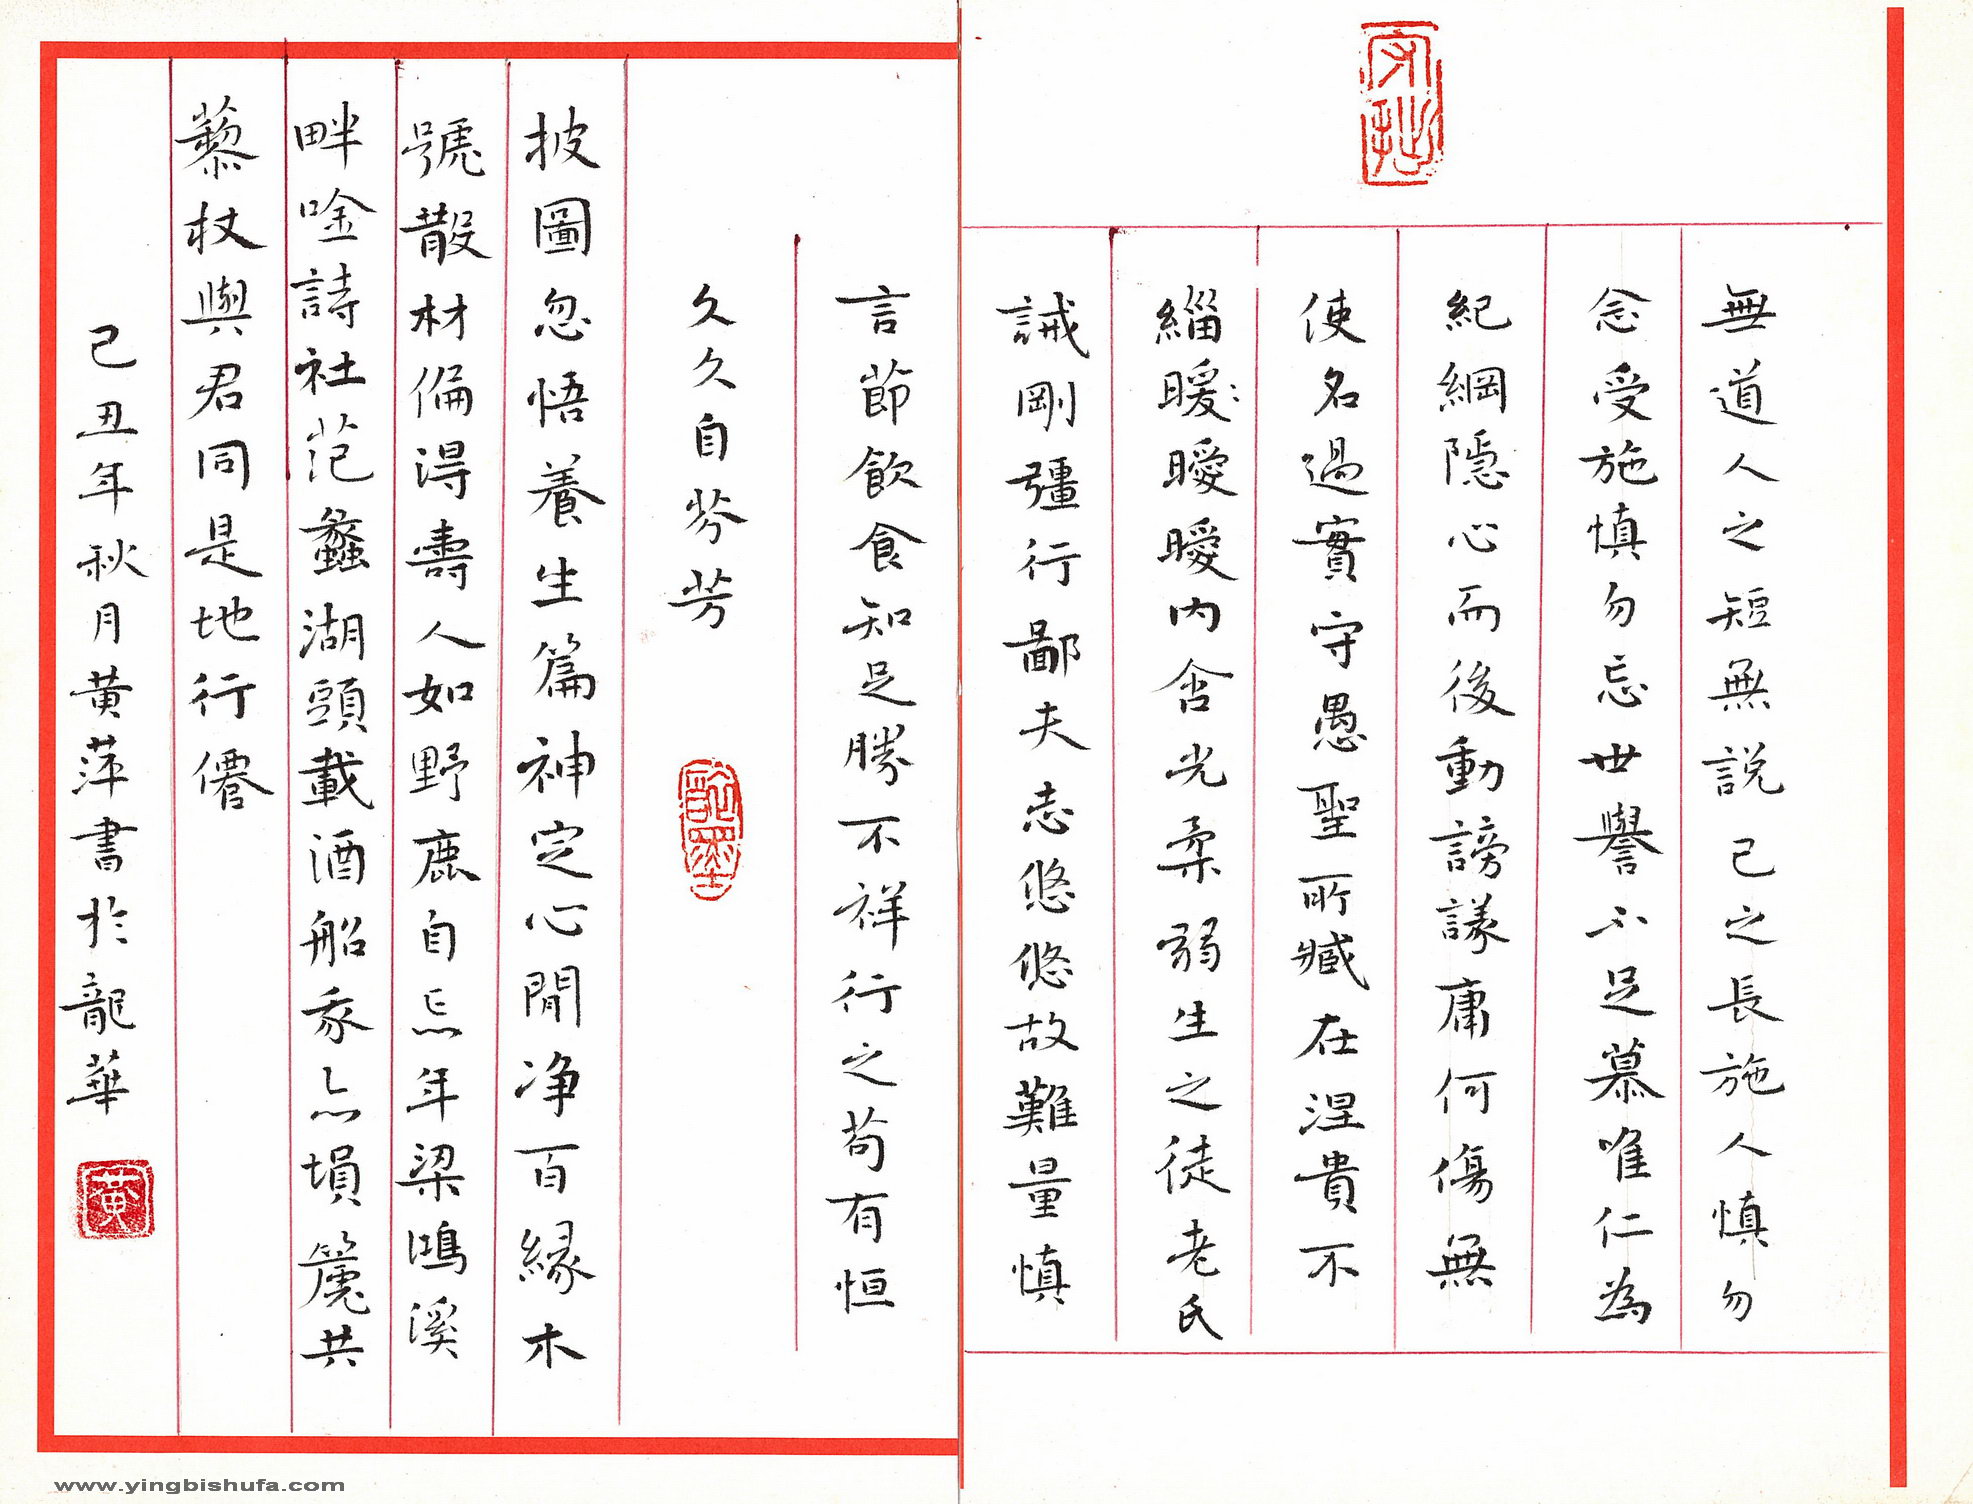 無道人之短無説己之長施人慎勿
念受施慎勿忘世譽不足慕唯仁為
紀綱隱心而後動謗議庸何傷無
使名過實守愚聖所臧在涅貴不
緇暖曖曖内含光柔弱生之徒老氏
誡剛彊行鄙夫志悠悠故難量慎
言節飲食知足勝不祥行之苟有恒
久久自芬芳
披圖忽悟養生篇神定心閒净百緣木
號散材偏得壽人如野鹿自忘年梁鴻溪
畔唫詩社范蠡湖頭載酒船我亦塤篪共
藜杖與君同是地行僊
己丑年秋月黄萍書於龍華
黄
www.yingbishufa.com